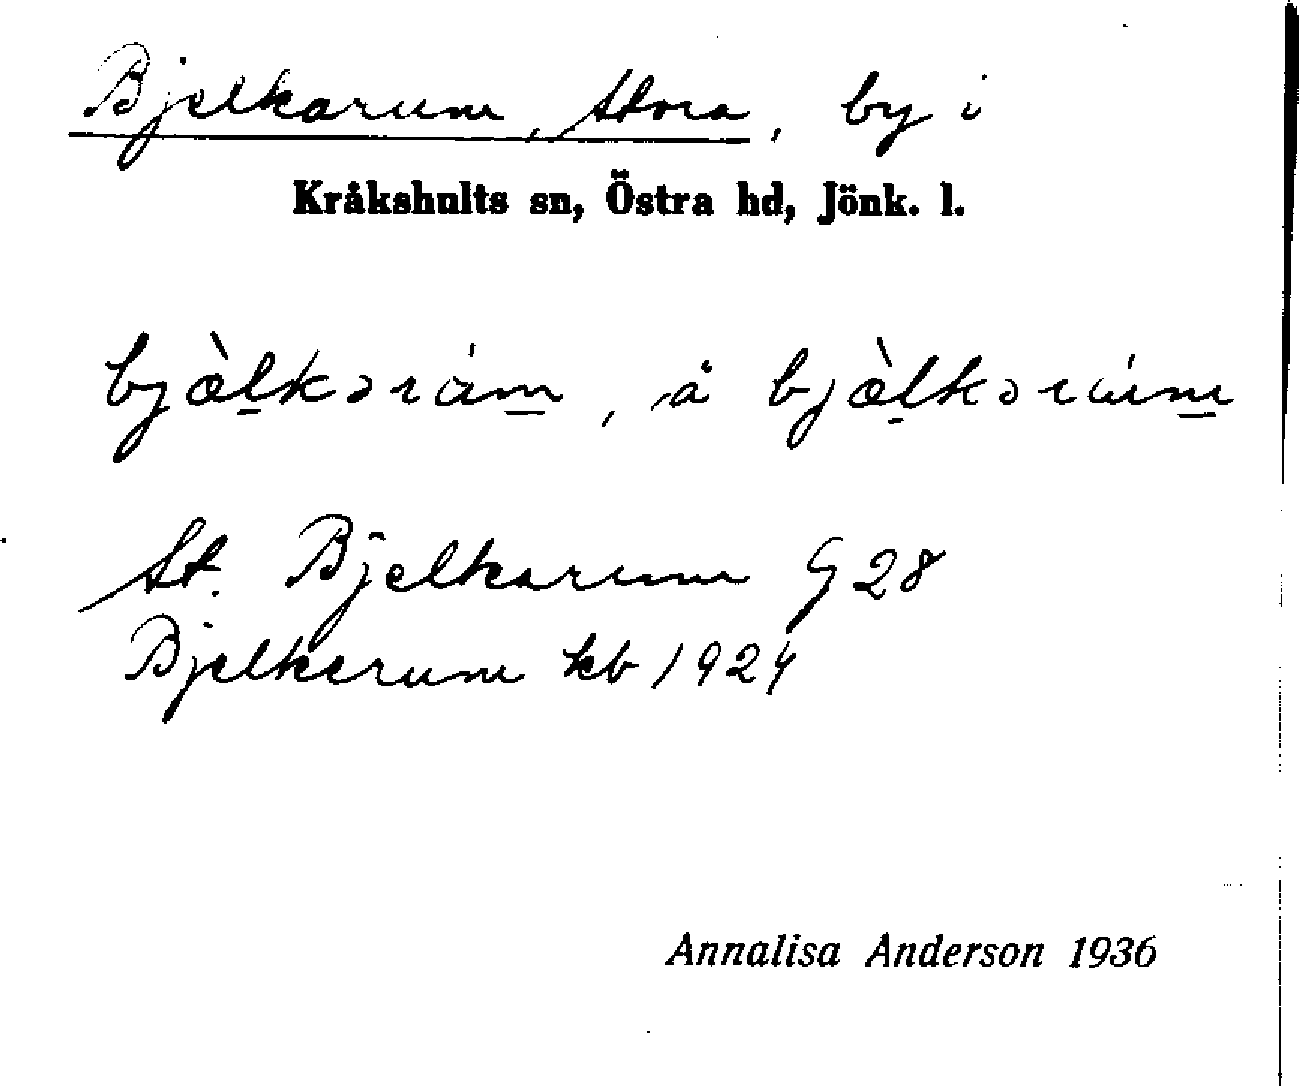 Bjelkarum, Stora, by i
Kråkshults sn, Östra hd, Jönk. l.
bjæ̀l̠kərám̠, å bjæ̀l̠kərúm̠
St. Bjelkarum G 28
Bjelkerum kb 1924
Annalisa Anderson 1936